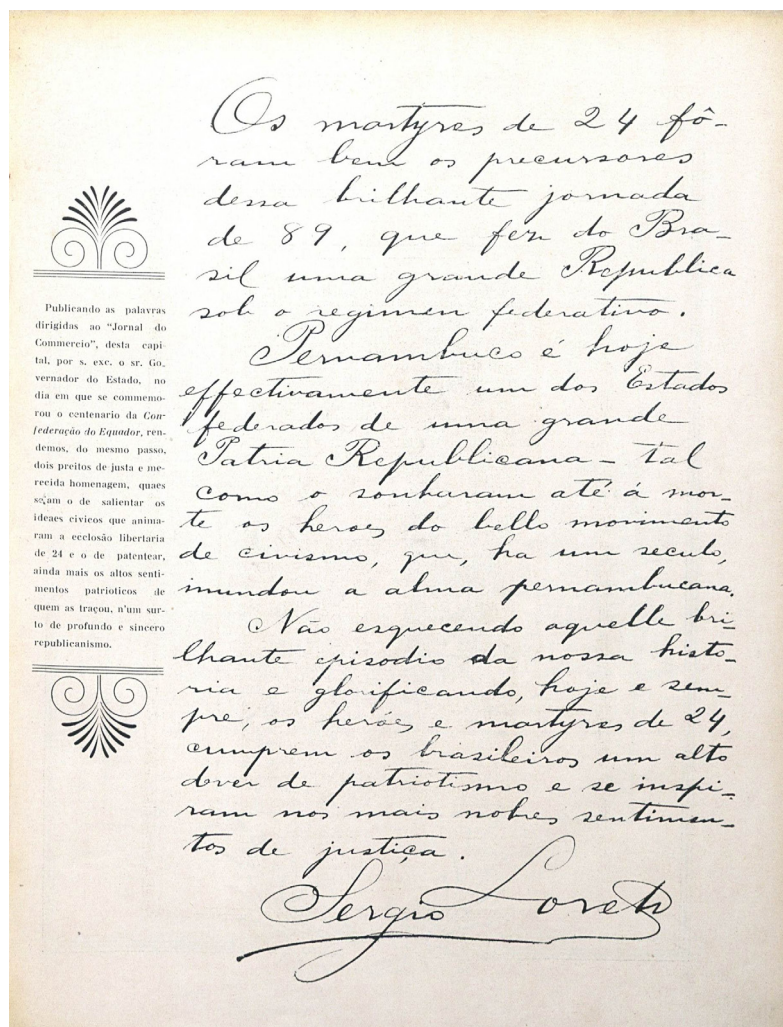 Publicando as palavras
dirigidas ao "Jornal do
Commercio", desta capi-
tal, por s. exc. o sr. Go-
vernador do Estado, no
dia em que se commemo-
rou o centenario da Con-
federação do Equador, ren-
demos, do mesmo passo,
dois preitos de justa e me-
recida homenagem, quaes
sejam o de salientar os
ideaes civicos que anima-
ram a ecclosão libertaria
de 24 e o de patentear,
ainda mais os altos senti-
mentos patrioticos de
quem as traçou, n'um sur-
to de profundo e sincero
republicanismo.
Os martyres de 24 fô-
ram bem os precursores
dessa brilhante jornada
de 89, que fez do Bra-
sil uma grande Republica
sob o regimen federativo.
Pernambuco é hoje
effectivamente um dos Estados
federados de uma grande
Patria Republicana - tal
como o sonharam até á mor-
te os heroes do bello movimento
de civismo, que, ha um seculo,
inundou a alma pernambucana.
Não esquecendo aquelle bri-
lhante episodio da nossa histo-
ria e glorificando, hoje e sem-
pre, os heróes e martyres de 24,
cumprem os brasileiros um alto
dever de patriotismo e se inspi-
ram nos mais nobres sentimen-
tos de justiça.
Sergio Loreto